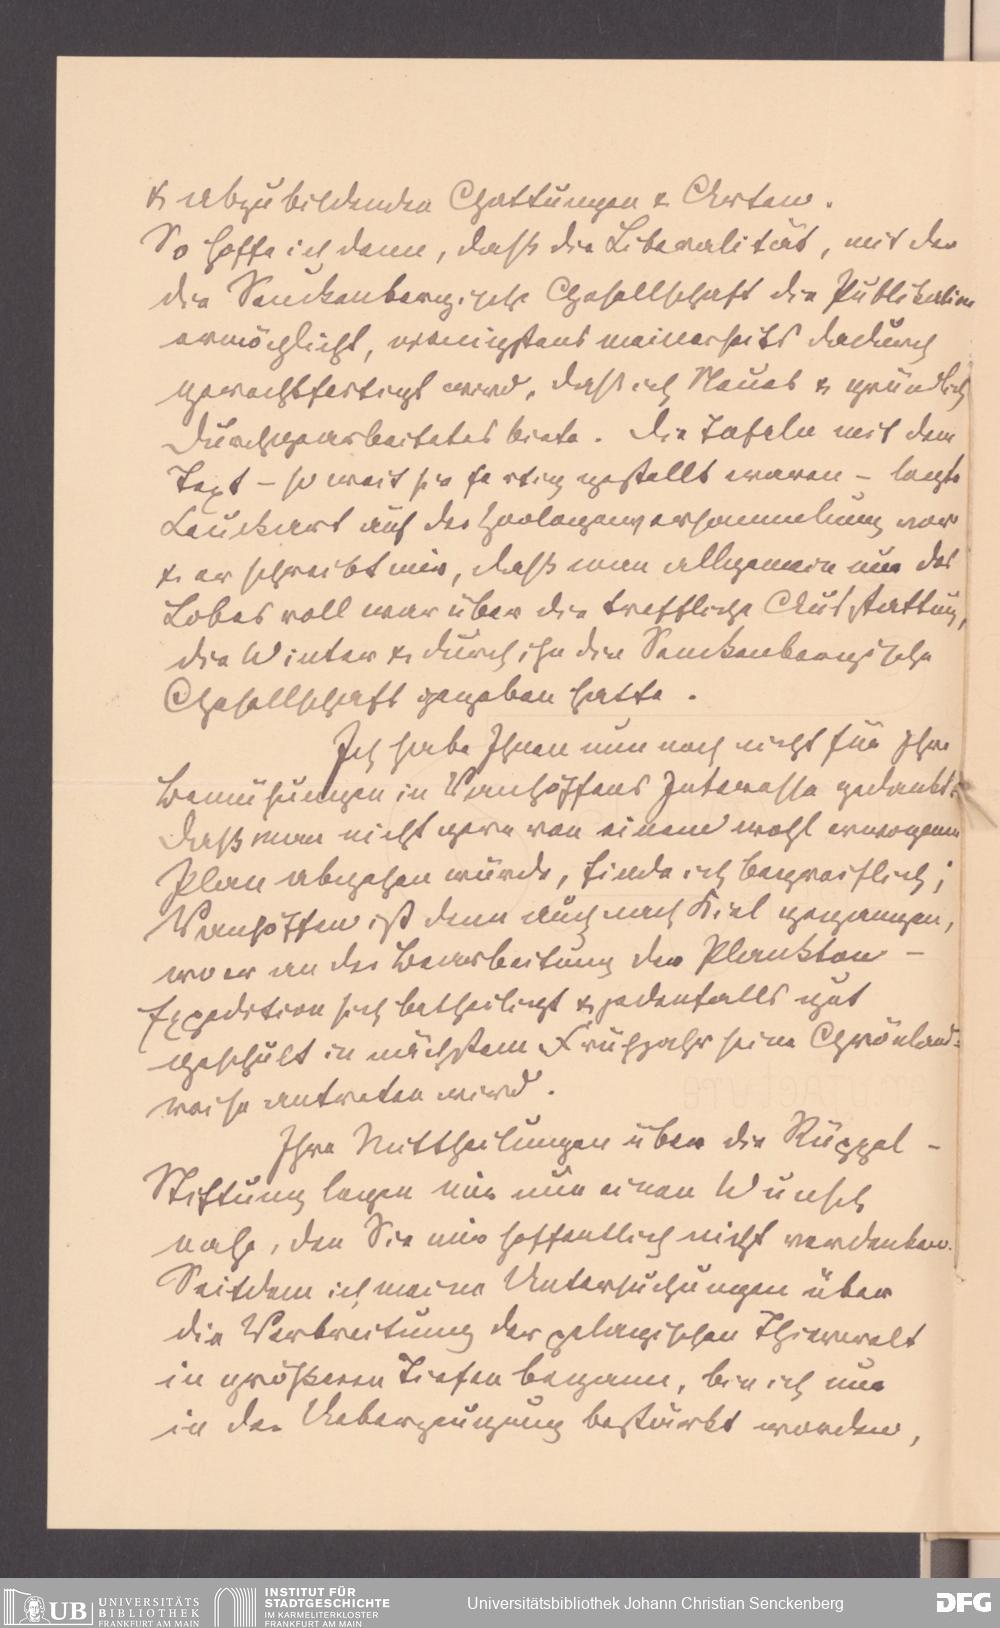 & abzubildenden Gattungen & Arten.
So hoffe ich denn, daß die Liberalität, mit der
die Senckenbergische Gesellschaft die Publikation
ermöglicht, wenigstens meinerseits dadurch
gerechtfertigt wird, daß ich Neues & gründlich
Durchgearbeitetes biete. Die Tafeln mit dem
Text – so weit sie fertig gestellt waren – legte
Leuckart auf der Zoologenversammlung vor
& er schreibt mir, daß man allgemein nur des
Lobes voll war über die treffliche Ausstattung,
die Winter & durch ihn die Senckenbergische
Gesellschaft gegeben hatte.
Ich habe Ihnen nun noch nicht für Ihre
Bemühungen in Vanhöffens Interesse gedankt.
Daß man nicht gern von einem wohl erwogenen
Plan abgehen würde, finde ich begreiflich;
Vanhöffen ist denn auch nach Kiel gegangen,
wo er an der Bearbeitung der Plankton-
Expedition sich betheiligt & jedenfalls gut
geschult in nächstem Frühjahr seine Grönland-
reise antreten wird.
Ihre Mittheilungen über die Rüppel-
Stiftung legen mir nun einen Wunsch
nahe, den Sie mir hoffentlich nicht verdenken.
Seitdem ich meine Untersuchungen über
die Verbreitung der pelagischen Thierwelt
in größeren Tiefen begann, bin ich nur
in der Ueberzeugung bestärkt worden,
UB UNIVERSITÄTS
BIBLIOTHEK
FRANKFURT AM MAIN
INSTITUT FÜR
STADTGESCHICHTE
IM KARMELITERKLOSTER
FRANKFURT AM MAIN
Universitätsbibliothek Johann Christian Senckenberg
DFG